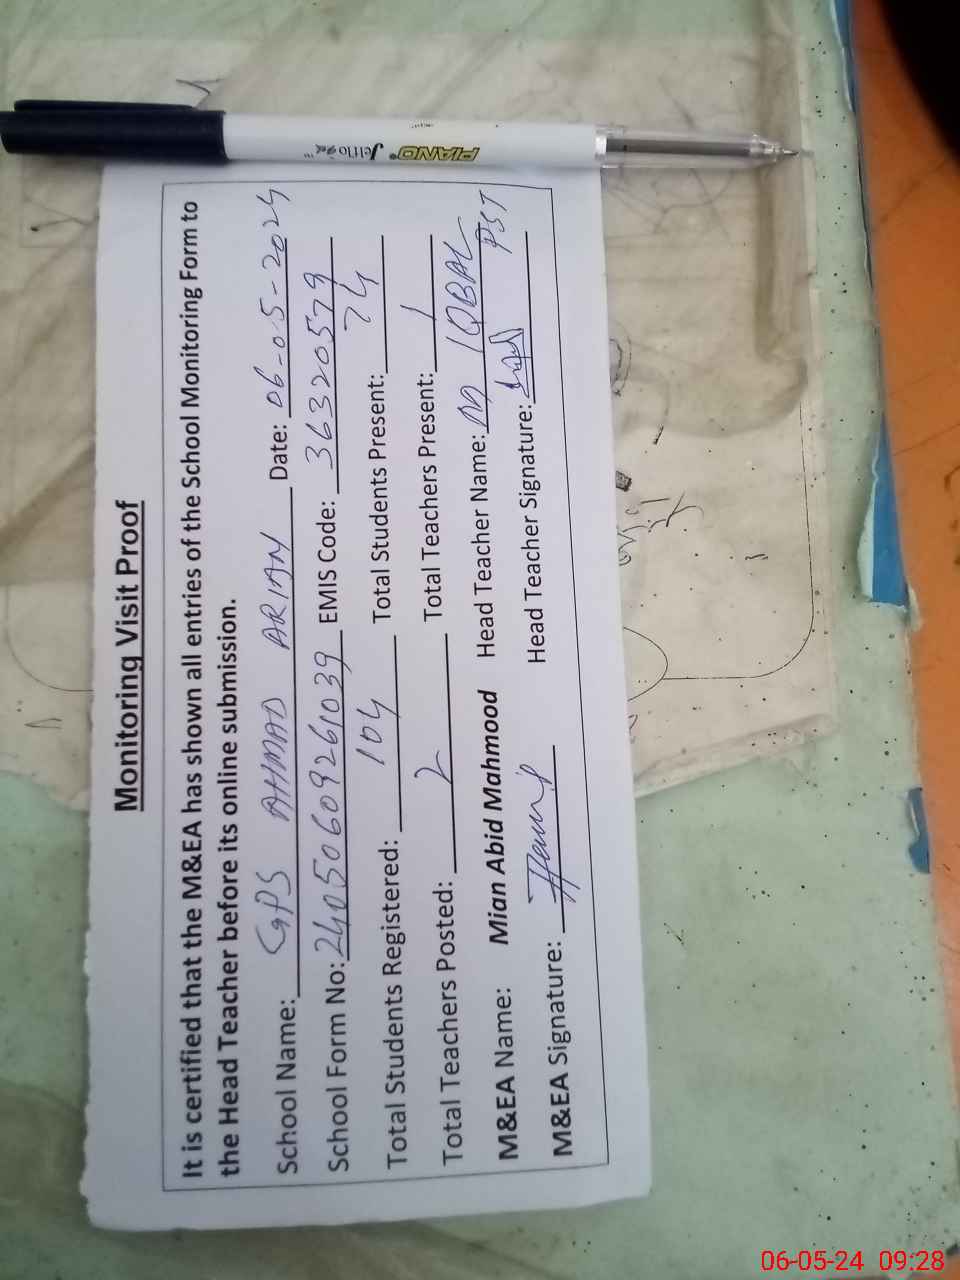 Monitoring Visit Proof
It is certified that the M&EA has shown all entries of the School Monitoring Form to
the Head Teacher before its online submission.
School Name: GPS AHMAD ARIAN Date: 06-05-2024
School Form No: 24050609261039 EMIS Code: 36320579
Total Students Registered: 104 Total Students Present: 74
Total Teachers Posted: 2 Total Teachers Present: 1
M&EA Name: Mian Abid Mahmood Head Teacher Name: M IQBAL PST
M&EA Signature: Head Teacher Signature:
PIANO® Jelflo
06-05-24 09:28